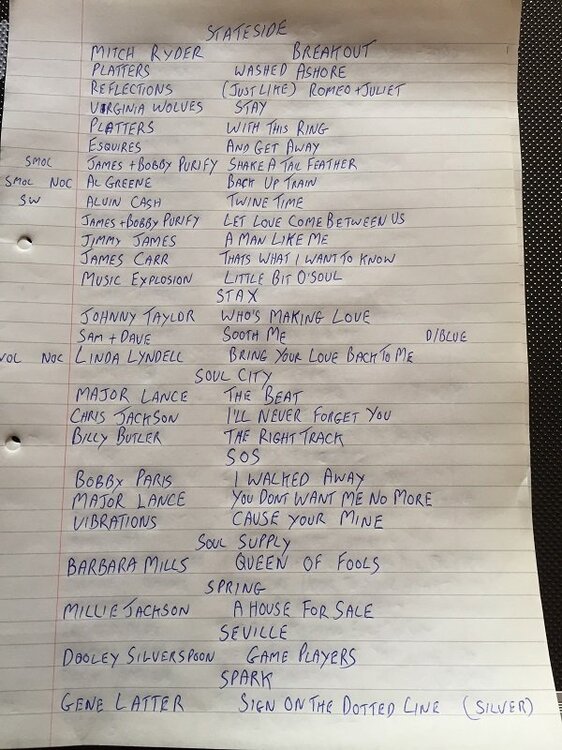 STATESIDE
MITCH RYDER BREAKOUT
PLATTERS WASHED ASHORE
REFLECTIONS (JUST LIKE) ROMEO + JULIET
VIRGINIA WOLVES STAY
PLATTERS WITH THIS RING
ESQUIRES AND GET AWAY
SMOL JAMES + BOBBY PURIFY SHAKE A TAIL FEATHER
SMOL NOC AL GREENE BACK UP TRAIN
SW ALVIN CASH TWINE TIME
JAMES + BOBBY PURIFY LET LOVE COME BETWEEN US
JIMMY JAMES A MAN LIKE ME
JAMES CARR THATS WHAT I WANT TO KNOW
MUSIC EXPLOSION LITTLE BIT O'SOUL
STAX
JOHNNY TAYLOR WHO'S MAKING LOVE
SAM + DAVE SOOTH ME D/BLUE
VOL NOC LINDA LYNDELL BRING YOUR LOVE BACK TO ME
SOUL CITY
MAJOR LANCE THE BEAT
CHRIS JACKSON I'LL NEVER FORGET YOU
BILLY BUTLER THE RIGHT TRACK
SOS
BOBBY PARIS I WALKED AWAY
MAJOR LANCE YOU DONT WANT ME NO MORE
VIBRATIONS CAUSE YOUR MINE
SOUL SUPPLY
BARBARA MILLS QUEEN OF FOOLS
SPRING
MILLIE JACKSON A HOUSE FOR SALE
SEVILLE
DOOLEY SILVERSPOON GAME PLAYERS
SPARK
GENE LATTER SIGN ON THE DOTTED LINE (SILVER)